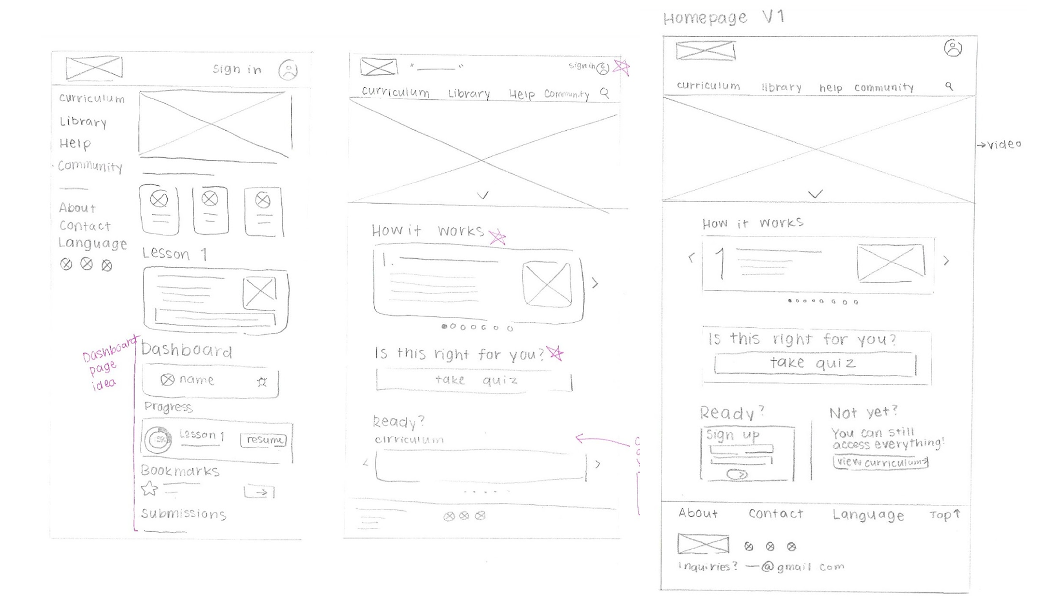 Sign in
curriculum
Library
Help
Community
About
Contact
Language
Lesson 1
Dashboard
page
idea
Dashboard
name
Progress
Lesson 1
resume
Bookmarks
Submissions
sign in
curriculum Library Help Community
How it works
1.
Is this right for you?
take quiz
Ready?
cirriculum
Homepage V1
curriculum library help community
→video
How it works
1
Is this right for you?
take quiz
Ready?
Sign up
Not yet?
You can still
access everything!
view curriculum
About Contact Language Top↑
inquiries? —@gmail com